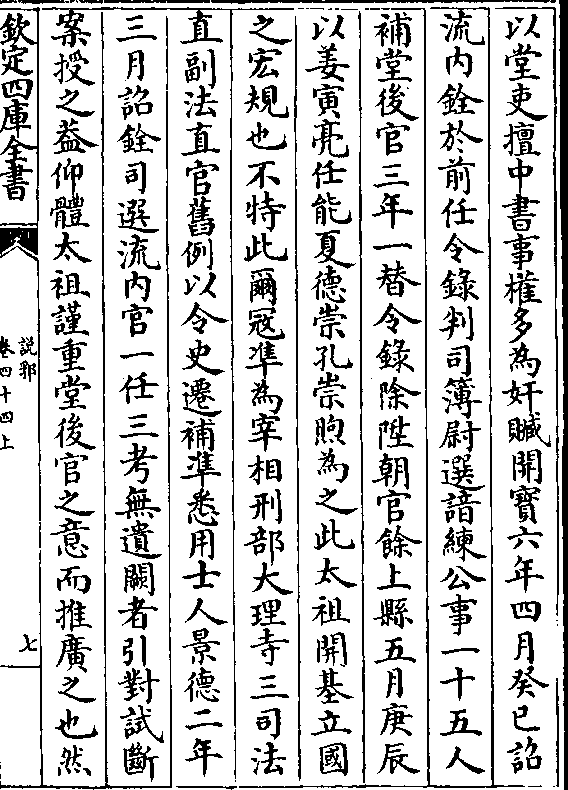 以堂吏擅中書事權多為奸贓開寶六年四月癸巳詔
流内銓於前任令錄判司簿尉選諳練公事一十五人
補堂後官三年一替令錄除陞朝官餘上縣五月庚辰
以姜寅亮任能夏德崇孔崇煦為之此太祖開基立國
之宏規也不特此爾冦凖為宰相刑部大理寺三司法
直副法直官舊例以令史遷補凖悉用士人景德二年
三月詔銓司選流内官一任三考無遺闕者引對試斷
案授之葢仰體太祖謹重堂後官之意而推廣之也然
欽定四庫全書
說郛
卷四十四上
七